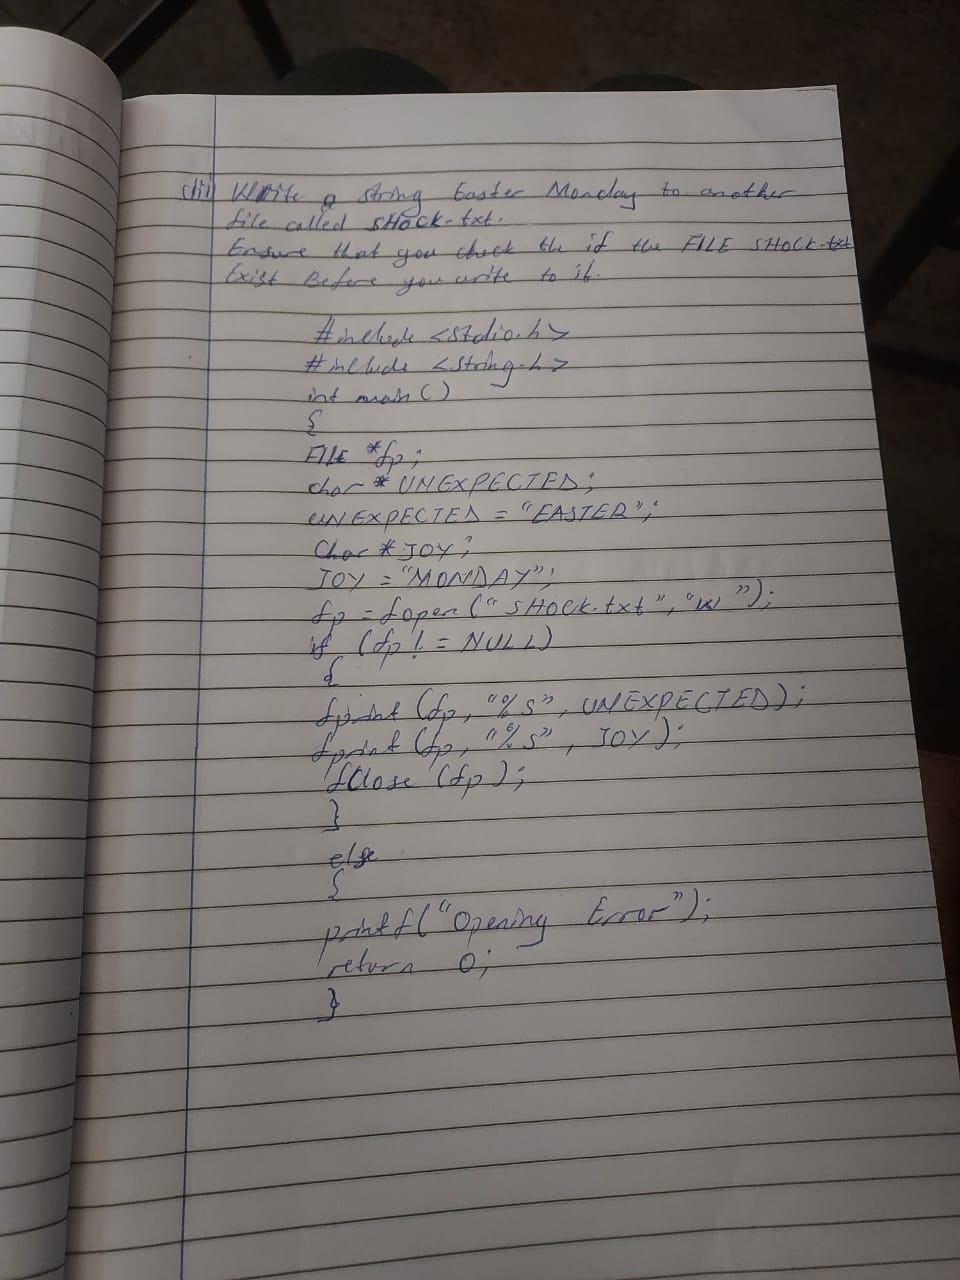 (iii) Write a string Easter Monday to another
file called SHOCK.txt.
Ensure that you check the if the FILE SHOCK.txt
Exist Before you write to it.
#include <stdio.h>
#include <string.h>
int main ()
{
FILE *fp;
char * UNEXPECTED;
UNEXPECTED = "EASTER";
Char * JOY;
JOY = "MONDAY";
fp = fopen ("SHOCK.txt", "w");
if (fp != NULL)
{
fprint (fp, "%s", UNEXPECTED);
fprint (fp, "%s", JOY);
fClose (fp);
}
else
{
printf("Opening Error");
return 0;
}